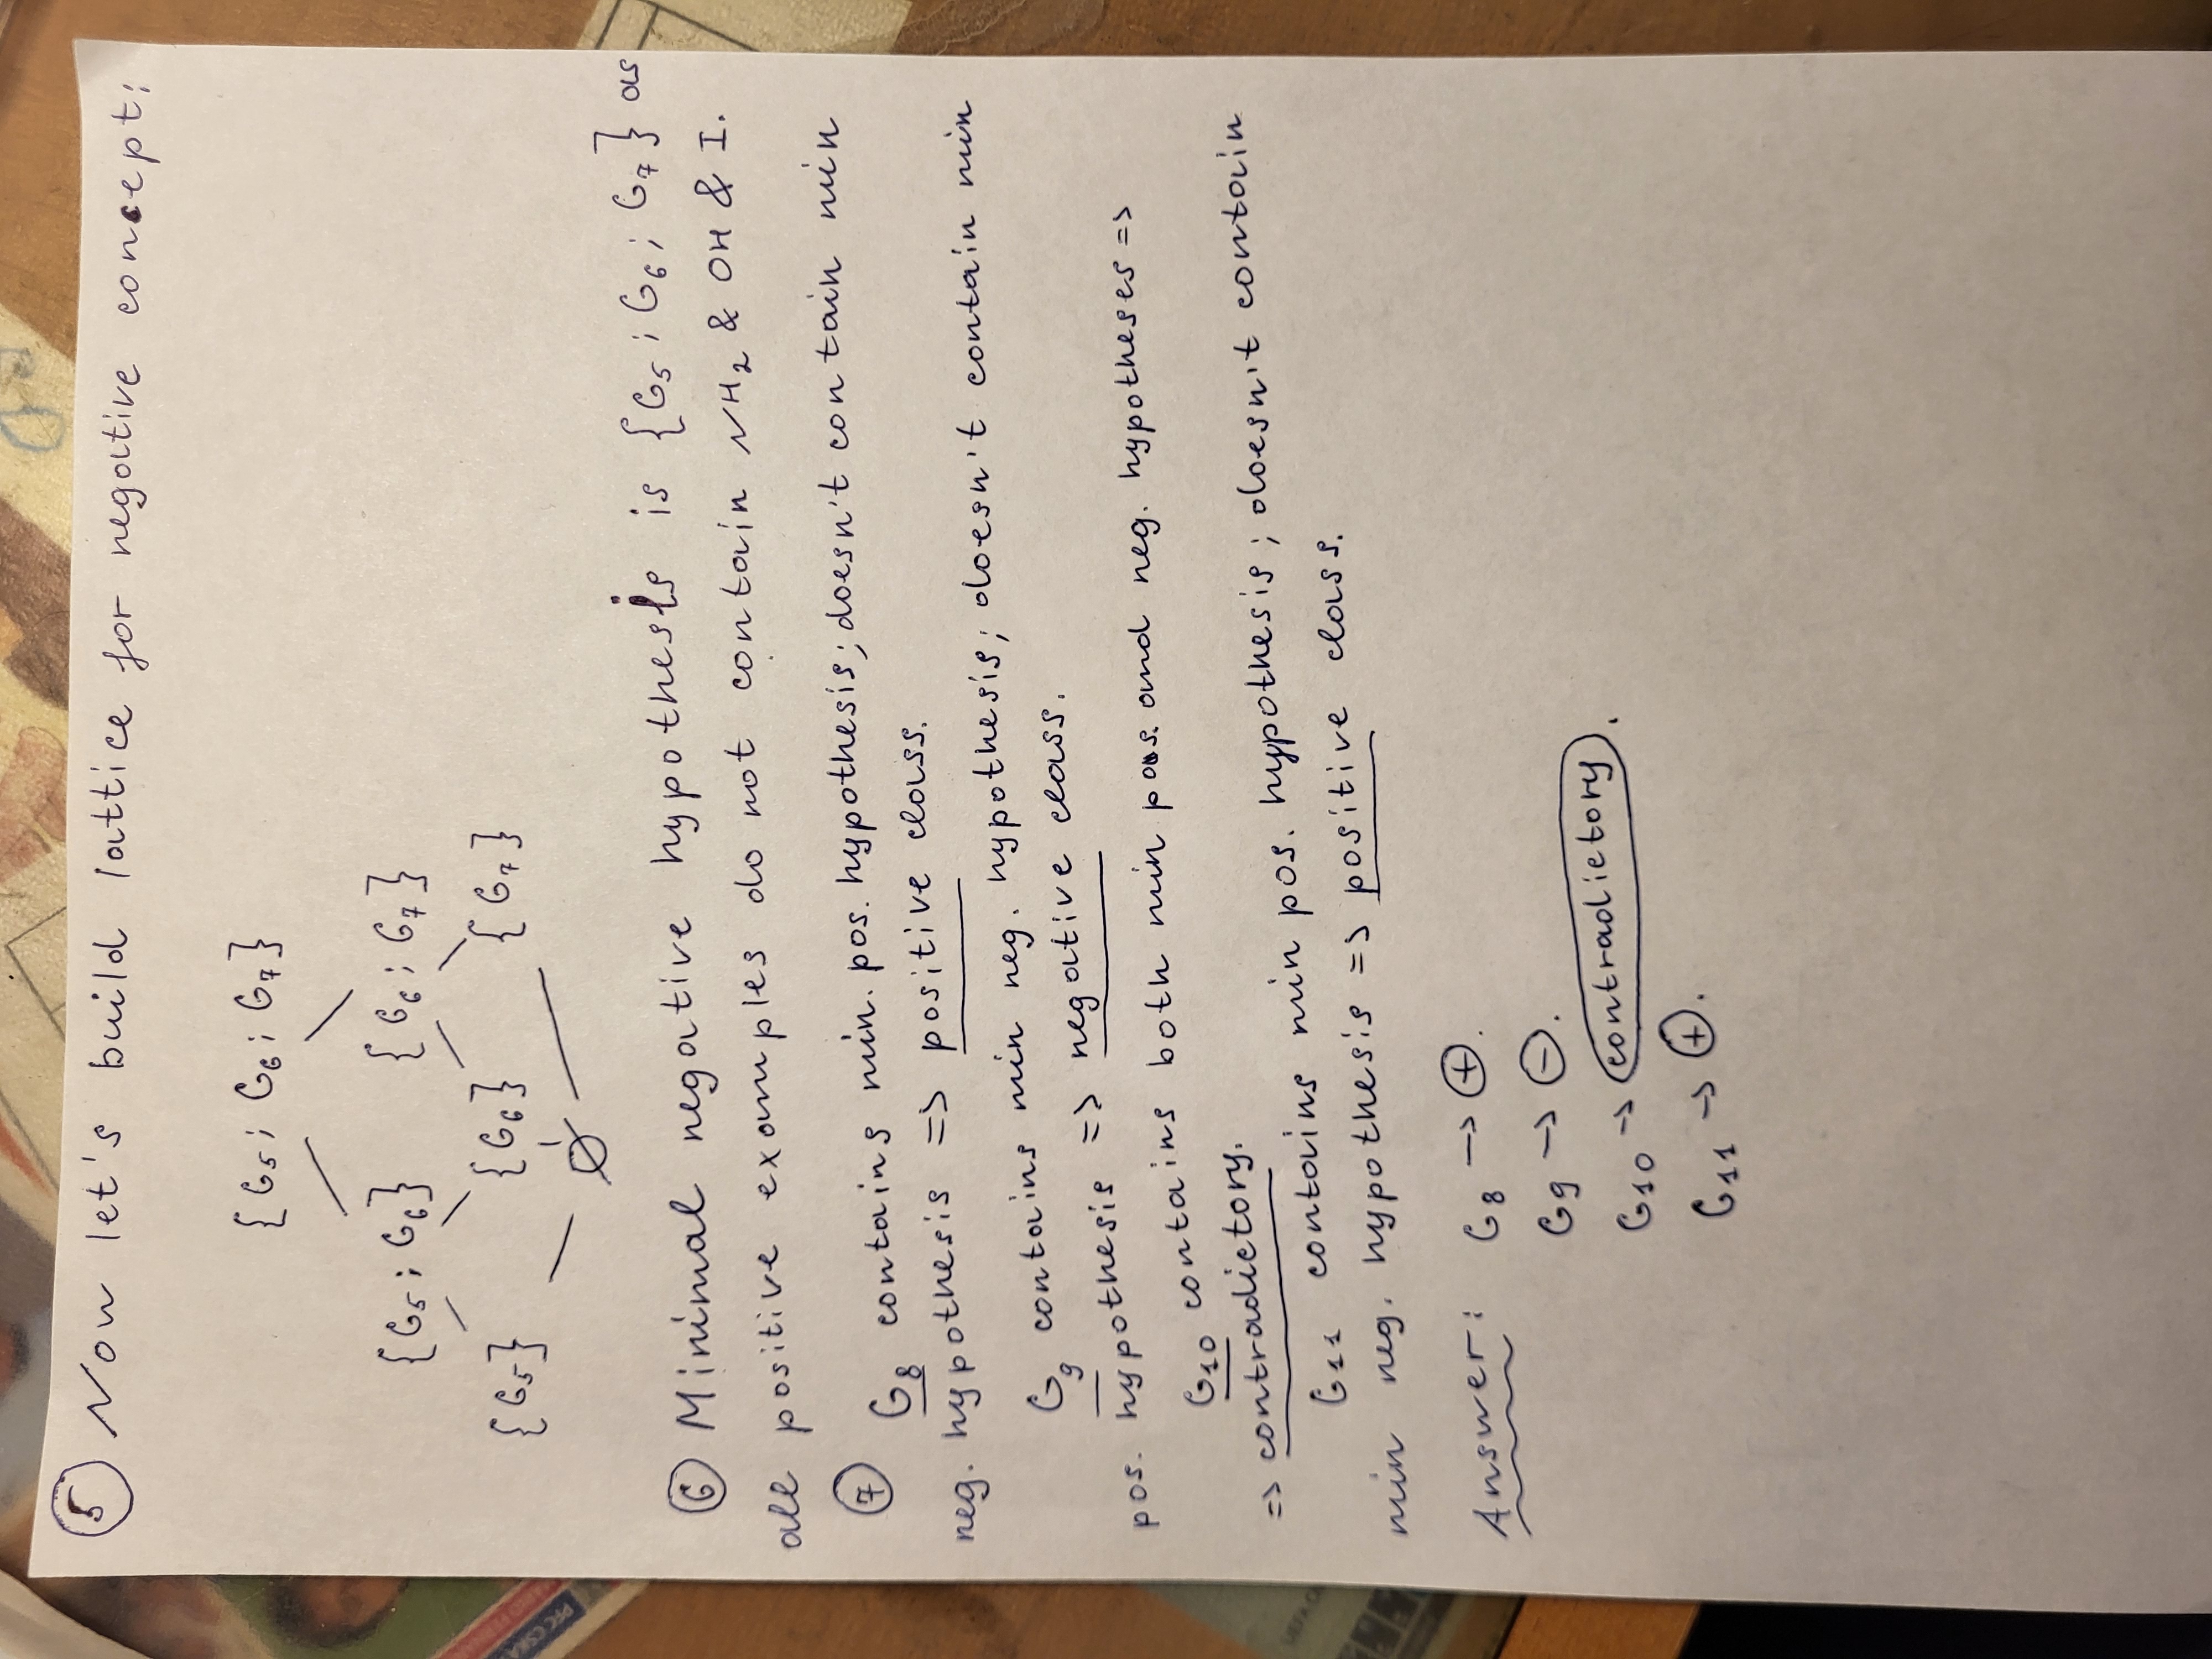 ⑤ Now let's build lattice for negative concept:
{G₅; G₆; G₇}
{G₅; G₆} {G₆; G₇}
{G₅} {G₆} {G₇}
∅
⑥ Minimal negative hypothesis is {G₅; G₆; G₇} as
all positive examples do not contain NH₂ & OH & I.
⑦ G₈ contains min. pos. hypothesis; doesn't contain min
neg. hypothesis => positive class.
G₉ contains min neg. hypothesis; doesn't contain min
pos. hypothesis => negative class.
G₁₀ contains both min pos. and neg. hypotheses =>
=> contradictory.
G₁₁ contains min pos. hypothesis; doesn't contain
min neg. hypothesis => positive class.
Answer: G₈ → ⊕.
G₉ → ⊖.
G₁₀ → contradictory.
G₁₁ → ⊕.